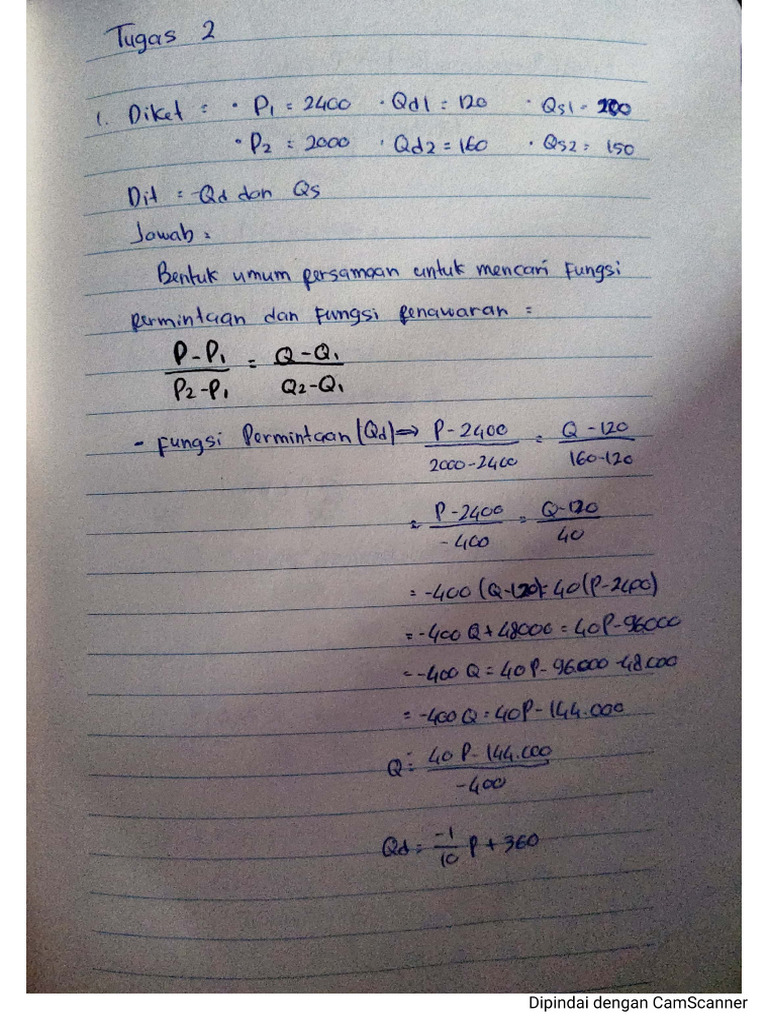 Tugas 2
1. Diket = • P1 = 2400 • Qd1 = 120 • Qs1 = 200
• P2 = 2000 • Qd2 = 160 • Qs2 = 150
Dit = Qd dan Qs
Jawab =
Bentuk umum persamaan untuk mencari fungsi
permintaan dan fungsi penawaran =
P-P1 / P2-P1 = Q-Q1 / Q2-Q1
- Fungsi Permintaan (Qd) ⇒ P-2400 / 2000-2400 = Q-120 / 160-120
= P-2400 / -400 = Q-120 / 40
= -400 (Q-120) = 40 (P-2400)
= -400 Q + 48000 = 40P - 96000
= -400 Q = 40P - 96.000 - 48.000
= -400 Q = 40P - 144.000
Q = 40 P - 144.000 / -400
Qd = -1/10 P + 360
Dipindai dengan CamScanner